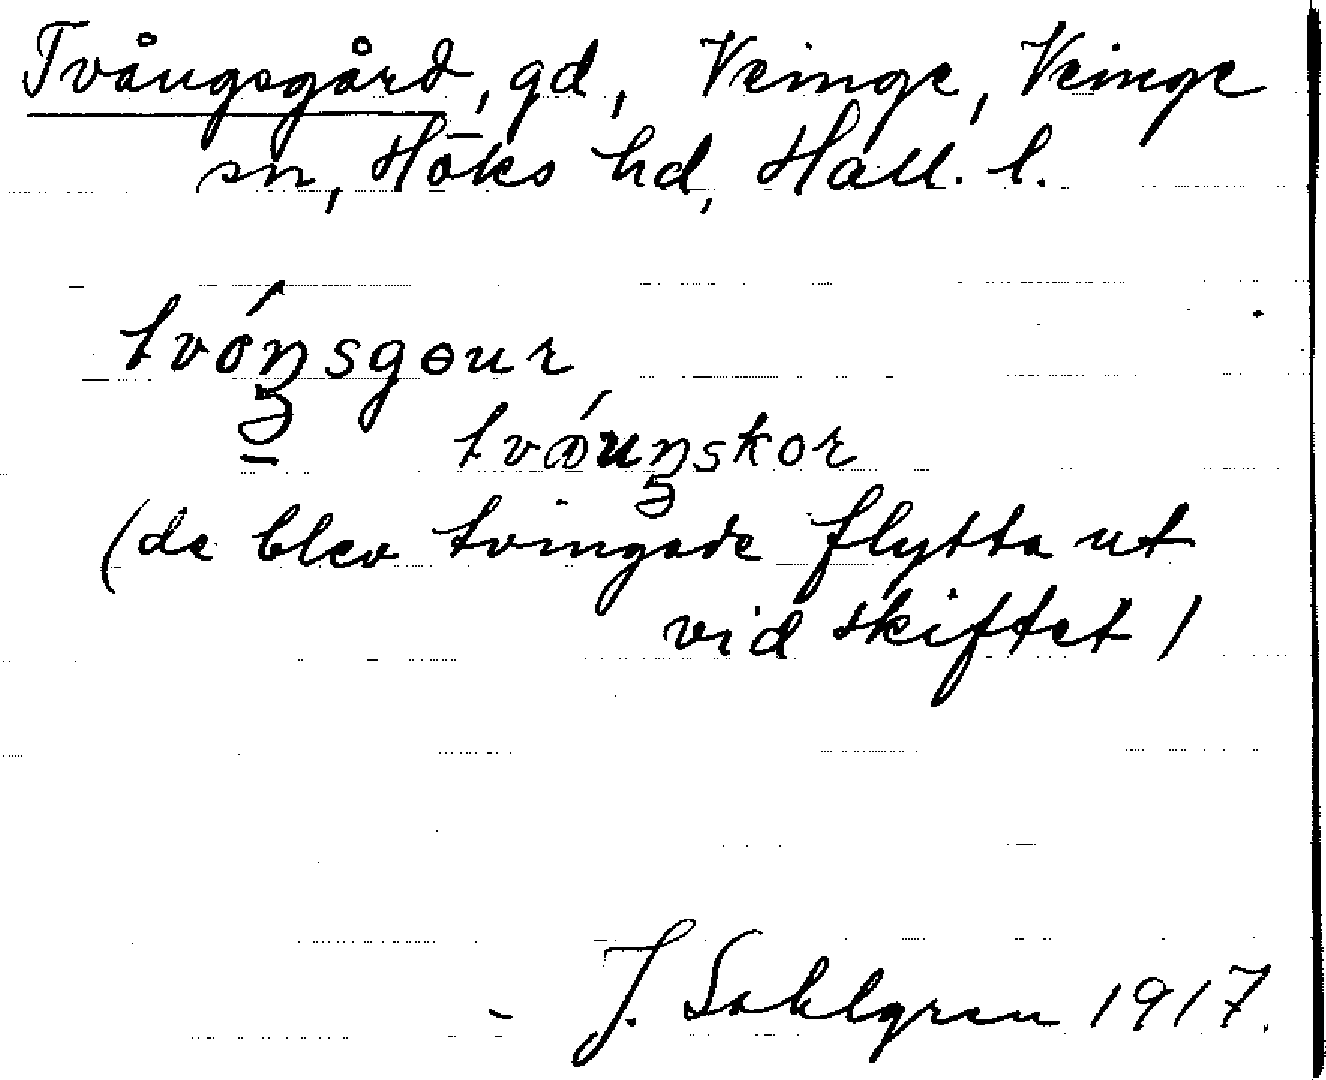 Tvångsgård, gd, Veinge, Veinge
sn, Höks hd, Hall. l.
tvóŋsgɵur
tvǻuŋskor
(de blev tvingade flytta ut
vid skiftet)
J. Sahlgren 1917.